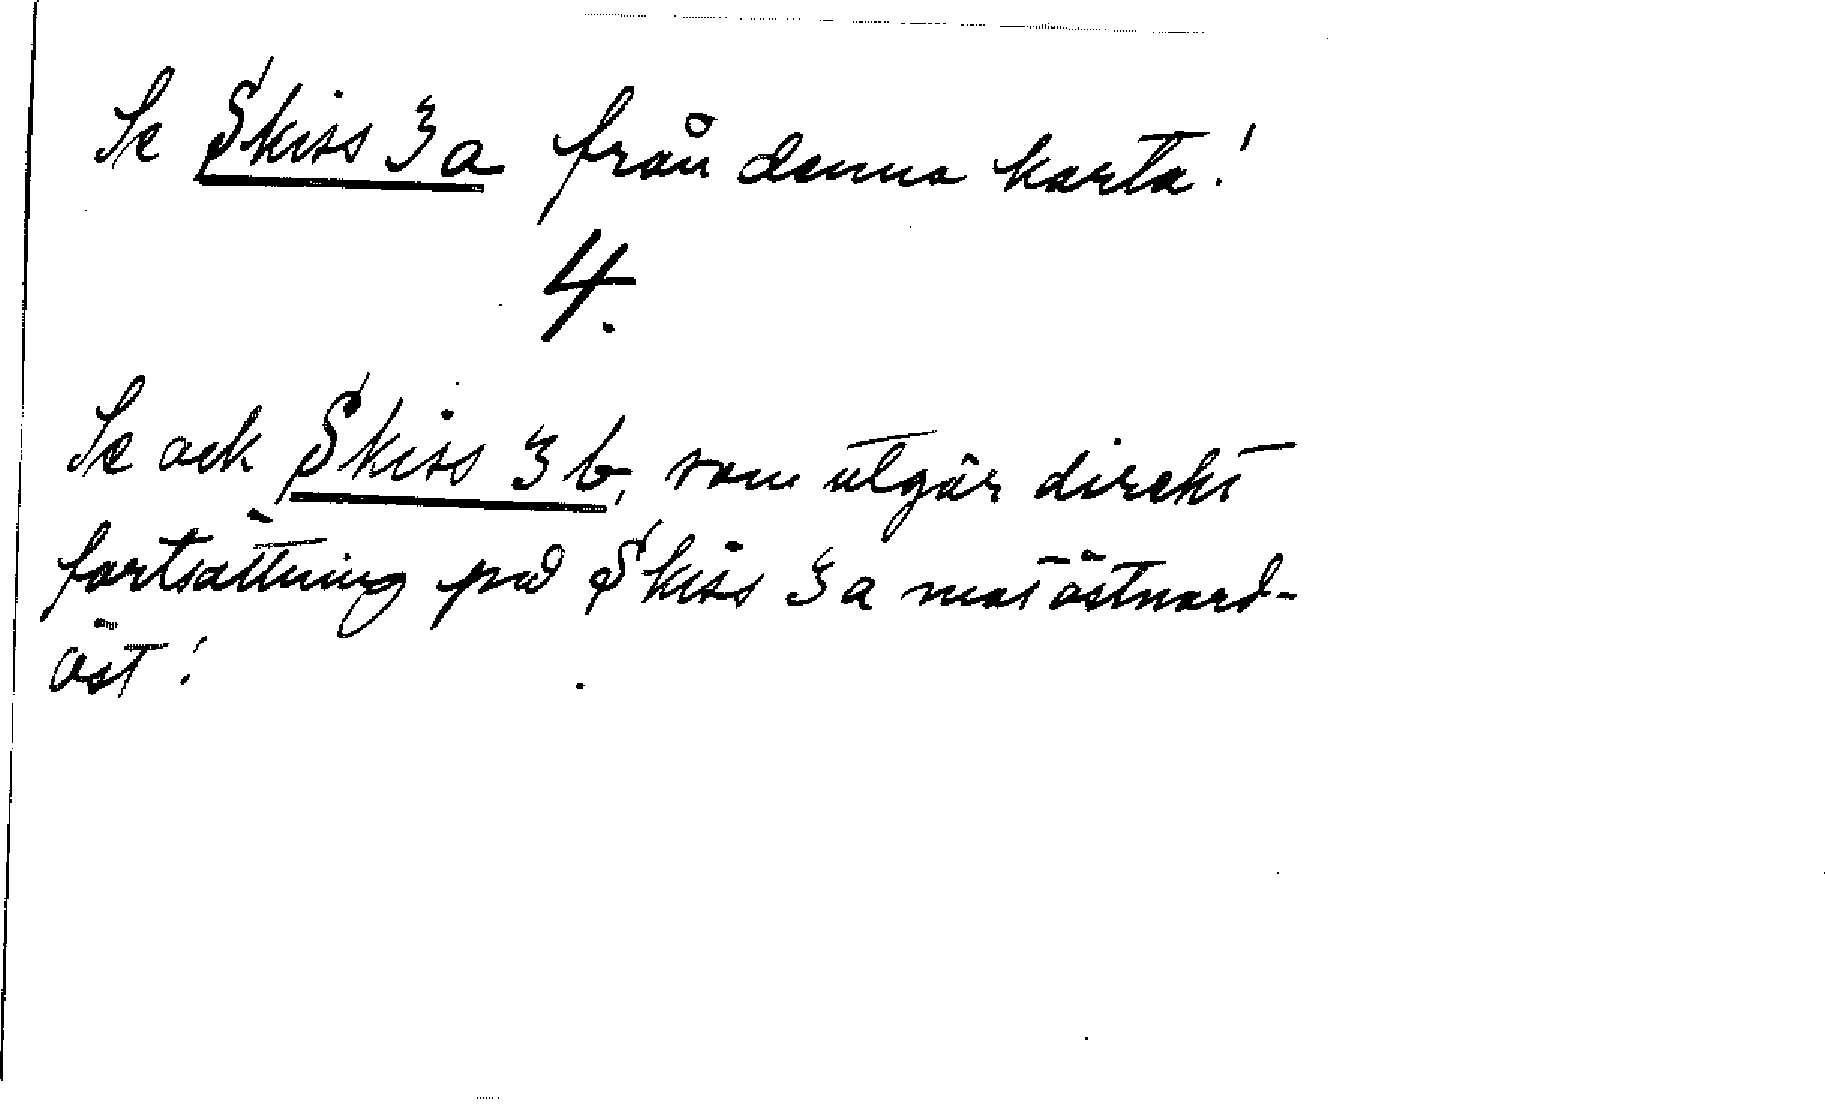 Se Skiss 3a från denna karta!
4.
Se ock Skiss 3b, som utgör direkt
fortsättning på Skiss 3a mot östnord-
öst!